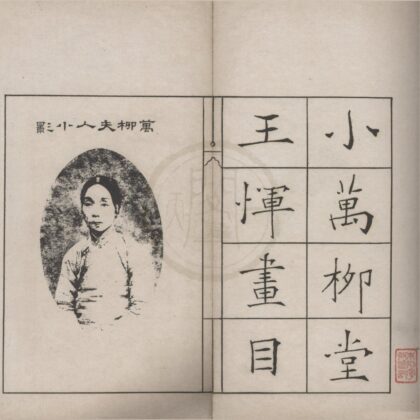 小萬柳堂
王惲畫目
萬柳夫人小影